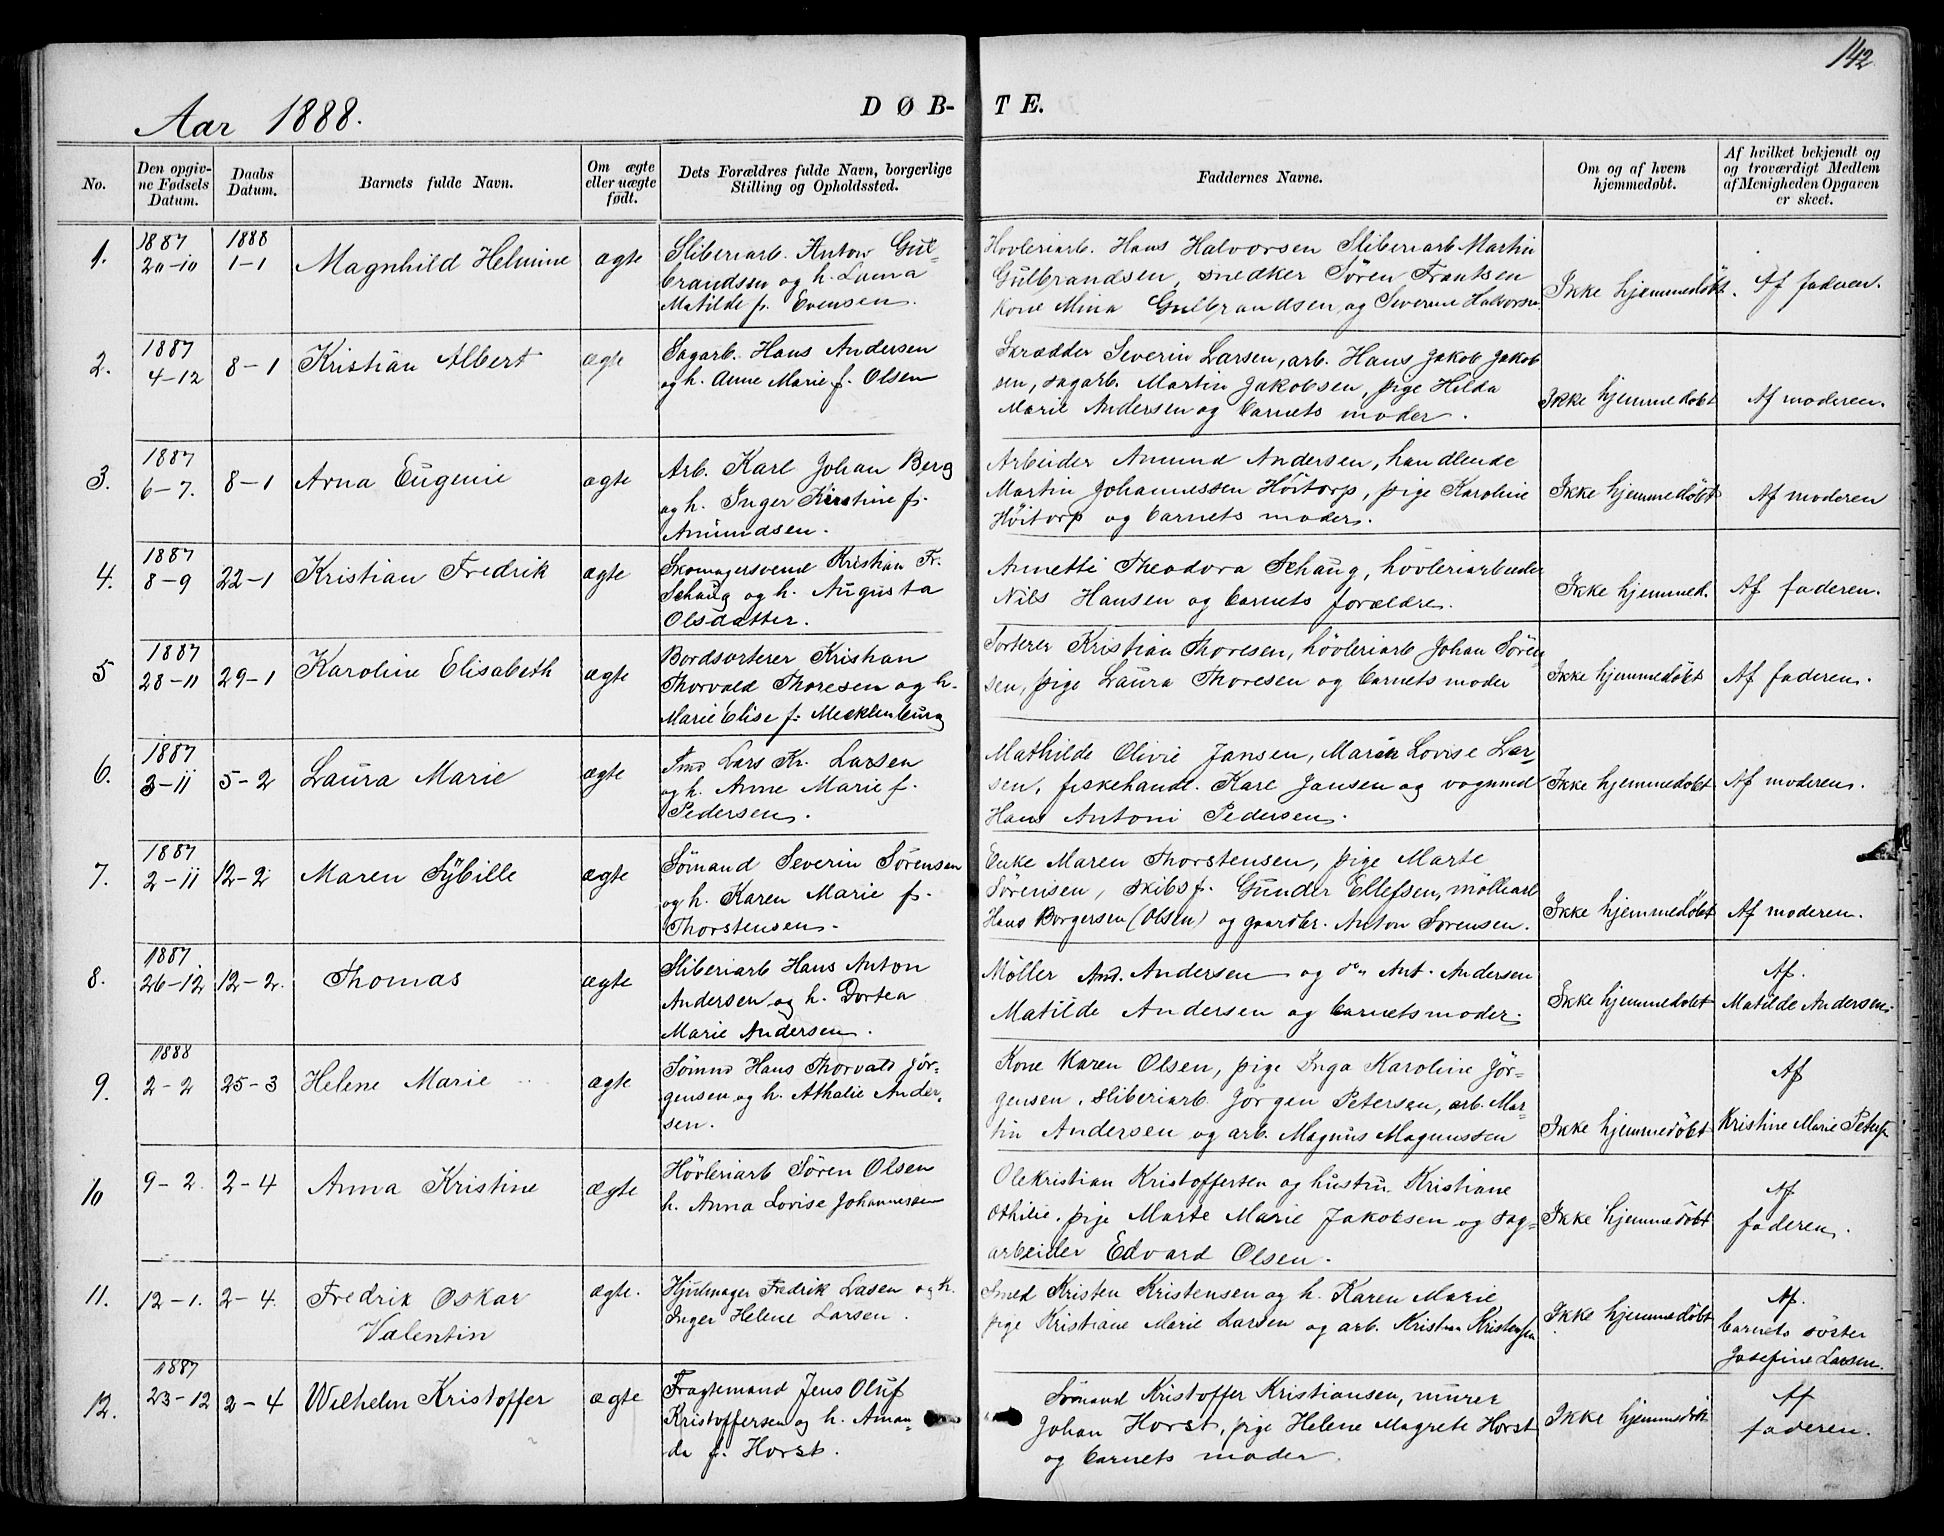 142
Aar 1888.
DØB-TE.
No.
Den opgiv-
ne Fødsels
Datum.
Daabs
Datum.
Barnets fulde Navn.
Om ægte
eller uægte
født.
Dets Forældres fulde Navn, borgerlige
Stilling og Opholdssted.
Faddernes Navne.
Om og af hvem
hjemmedøbt.
Af hvilket bekjendt og
og troværdigt Medlem
af Menigheden Opgaven
er skeet.
1.
1887
20-10
1888
1-1
Magnhild Helmine
ægte
Sliberiarb. Anton Gul-
brandsen og h. Laura
Matilde f. Evensen.
Hövleriarb. Hans Halvorsen Sliberiarb Martin
Gulbrandsen, snedker Søren Frantsen
kone Mina Gulbrandsen og Severine Halvorsen
Ikke hjemmedøbt.
Af faderen.
2.
1887
4-12
8-1
Kristian Albert
ægte
Sagarb. Hans Andersen
og h. Anne Marie f. Olsen
Skrædder Severin Larsen, arb. Hans Jakob Jakob
sen, sagarb. Martin Jakobsen, pige Hilda
Marie Andersen og barnets moder.
Ikke hjemmedøbt
Af moderen.
3.
1887
6-7.
8-1
Arna Eugenie
ægte
Arb. Karl Johan Berg
og h. Inger Kirstine f.
Amundsen.
Arbeider Amund Andersen, handlende
Martin Johannessen Höitorp, pige Karoline
Höitorp og barnets moder.
Ikke hjemmedøbt
Af moderen
4.
1887
8-9
22-1
Kristian Fredrik
ægte
Skomagersvend Kristian Fr.
Schaug og h. Augusta
Olsdatter.
Annetti Theodora Schaug, hövleriarbeider
Nils Hansen og barnets forældre.
Ikke hjemmed.
Af faderen.
5
1887
28-11
29-1
Karoline Elisabeth
ægte
Bordsorterer Kristian
Thorvald Thoresen og h.
Marie Elise f. Mecklenburg
Sorterer Kristian Thoresen, hövleriarb Johan Sören
sen, pige Laura Thoresen og barnets moder
Ikke hjemmedøbt
Af faderen.
6.
1887
3-11
5-2
Laura Marie
ægte
Smd Lars Kr. Larsen
og h. Anne Marie f.
Pedersen.
Mathilde Olivie Jansen, Maren Lovise Lar-
sen, fiskehandl. Karl Jansen og vognmd
Hans Antoni Pedersen.
Ikke hjemmedøbt
Af moderen.
7.
1887
2-11
12-2
Maren Sybille
ægte
Sömand Severin Sørensen
og h. Karen Marie f.
Thorstensen.
Enke Maren Thorstensen, pige Marte
Sørensen, skibsf. Gunder Ellefsen, möllearb
Hans Borgersen (Olsen) og gaardbr. Anton Sorensen.
Ikke hjemmedøbt
Af moderen.
8.
1887
26-12
12-2.
Thomas
ægte
Sliberiarb Hans Anton
Andersen og h. Dortea
Marie Andersen.
Møller And. Andersen og do Ant. Andersen
Matilde Andersen og barnets moder.
Ikke hjemmedøbt
Af.
Matilde Andersen.
9.
1888
2-2
25-3
Helene Marie
ægte
Sömnd Hans Thorvald Jör-
gensen og h. Athalie Ander-
sen.
Kone Karen Olsen, pige Inga Karoline Jör-
gensen, sliberiarb. Jörgen Petersen, arb. Mar-
tin Andersen og arb. Magnus Magnussen
Ikke hjemmedøbt
Af
Kristine Marie Peters
10
9-2.
2-4
Anna Kristine
ægte
Hövleriarb Sören Olsen
h. Anna Lovise Johannesen
Olekristian Kristoffersen og hustru Kristiane
Othilie, pige Marte Marie Jakobsen og sag-
arbeider Edvard Olsen.
Ikke hjemmedøbt
Af
faderen.
11.
12-1.
2-4.
Fredrik Oskar
Valentin
ægte.
Hjulmager Fredrik Lasen og h.
Inger Helene Larsen.
Smed Kristen Kristensen og h. Karen Marie
pige Kristiane Marie Larsen og arb. Kristian Kristensen
Ikke hjemmedøbt
Af.
barnets söster
Josefine Larsen.
12.
1887
23-12
2-4
Wilhelm Kristoffer
ægte
Fragtemand Jens Oluf
Kristoffersen og h. Aman-
da f. Horst.
Sömand Kristoffer Kristiansen, murer
Johan Horst, pige Helene Magrete Horst
og barnets moder.
Ikke hjemmedøbt
Af
faderen.